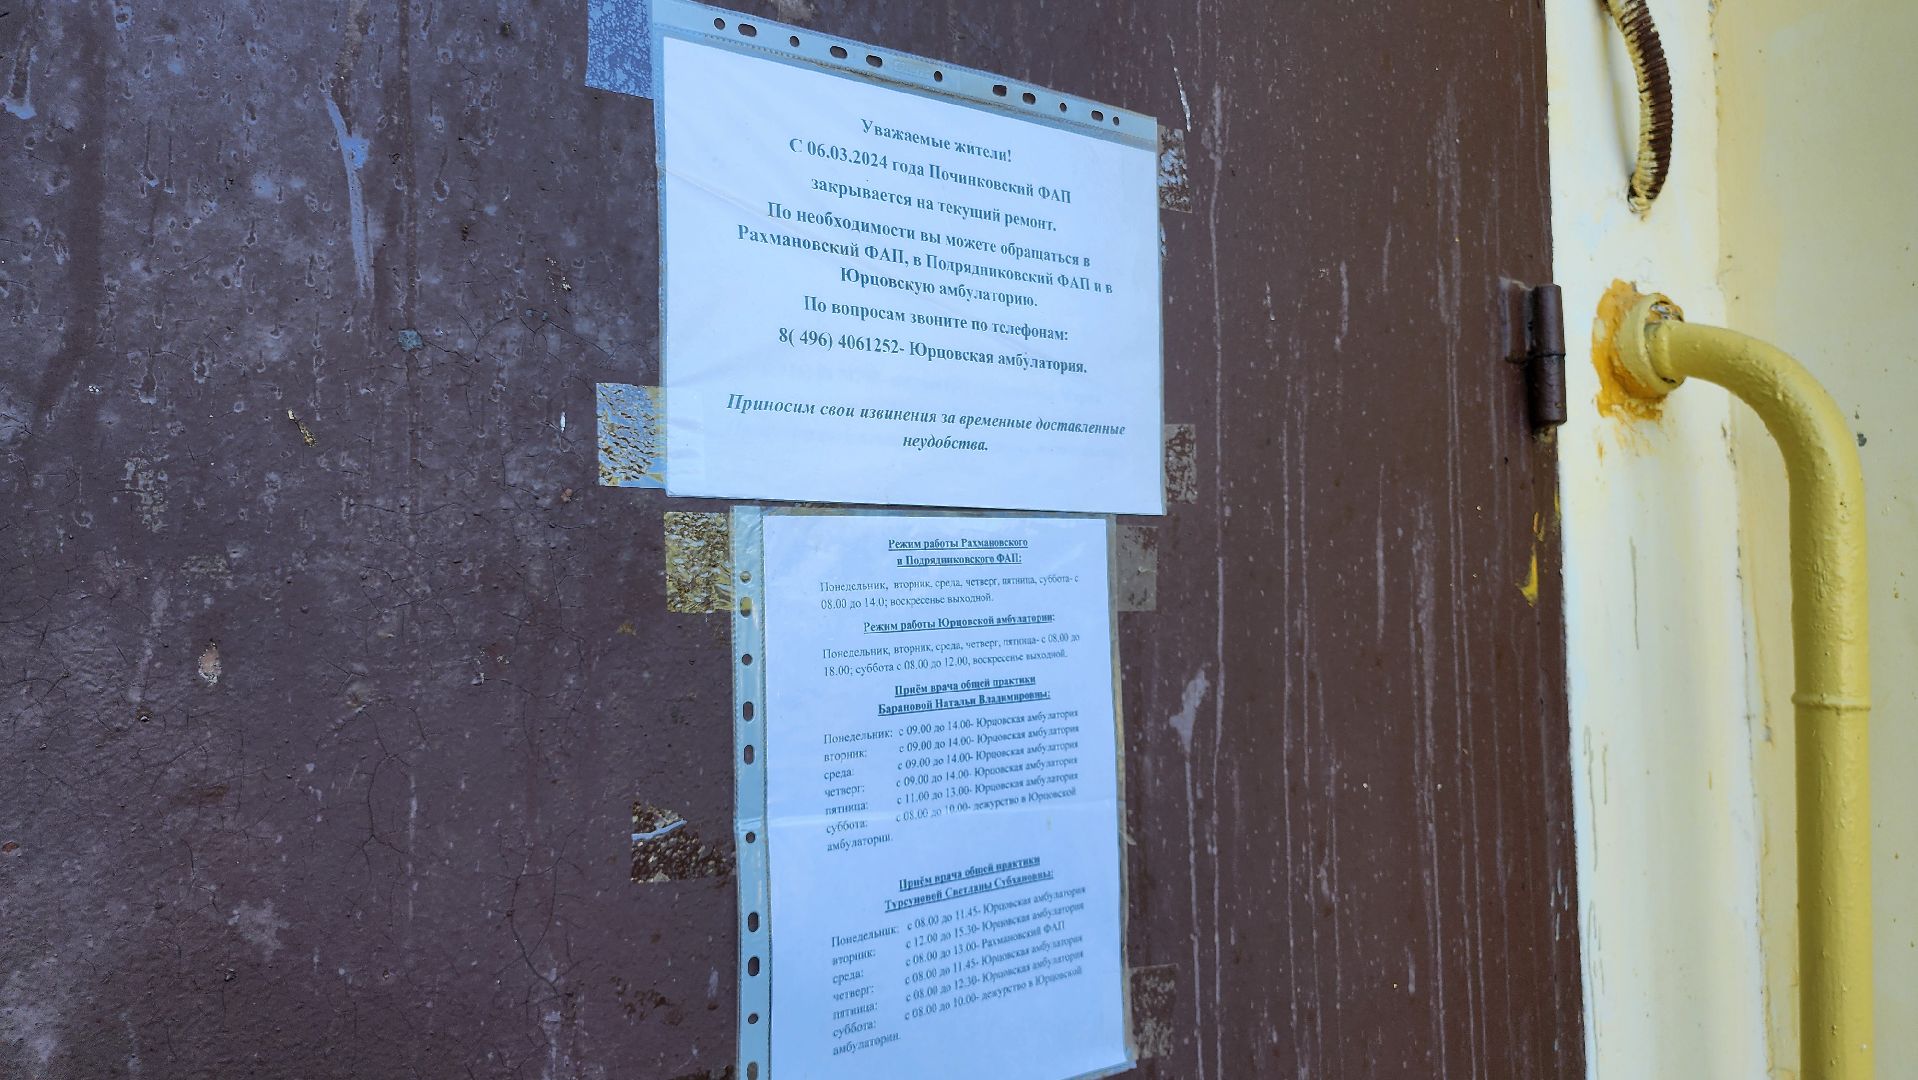 Уважаемые жители!
С 06.03.2024 года Починковский ФАП
закрывается на текущий ремонт.
По необходимости вы можете обращаться в
Рахмановский ФАП, в Подрядниковский ФАП и в
Юрцовскую амбулаторию.
По вопросам звоните по телефонам:
8( 496) 4061252- Юрцовская амбулатория.
Приносим свои извинения за временные доставленные
неудобства.
Режим работы Рахмановского
и Подрядниковского ФАП:
Понедельник, вторник, среда, четверг, пятница, суббота- с
08.00 до 14.0; воскресенье выходной.
Режим работы Юрцовской амбулатории:
Понедельник, вторник, среда, четверг, пятница- с 08.00 до
18.00; суббота с 08.00 до 12.00, воскресенье выходной.
Приём врача общей практики
Барановой Натальи Владимировны:
Понедельник: с 09.00 до 14.00- Юрцовская амбулатория
вторник: с 09.00 до 14.00- Юрцовская амбулатория
среда: с 09.00 до 14.00- Юрцовская амбулатория
четверг: с 09.00 до 14.00- Юрцовская амбулатория
пятница: с 11.00 до 13.00- Юрцовская амбулатория
суббота: с 08.00 до 10.00- дежурство в Юрцовской
амбулатории.
Приём врача общей практики
Турсуновой Светланы Субхановны:
Понедельник: с 08.00 до 11.45- Юрцовская амбулатория
вторник: с 12.00 до 15.30- Юрцовская амбулатория
среда: с 08.00 до 13.00- Рахмановский ФАП
четверг: с 08.00 до 11.45- Юрцовская амбулатория
пятница: с 08.00 до 12.30- Юрцовская амбулатория
суббота: с 08.00 до 10.00- дежурство в Юрцовской
амбулатории.